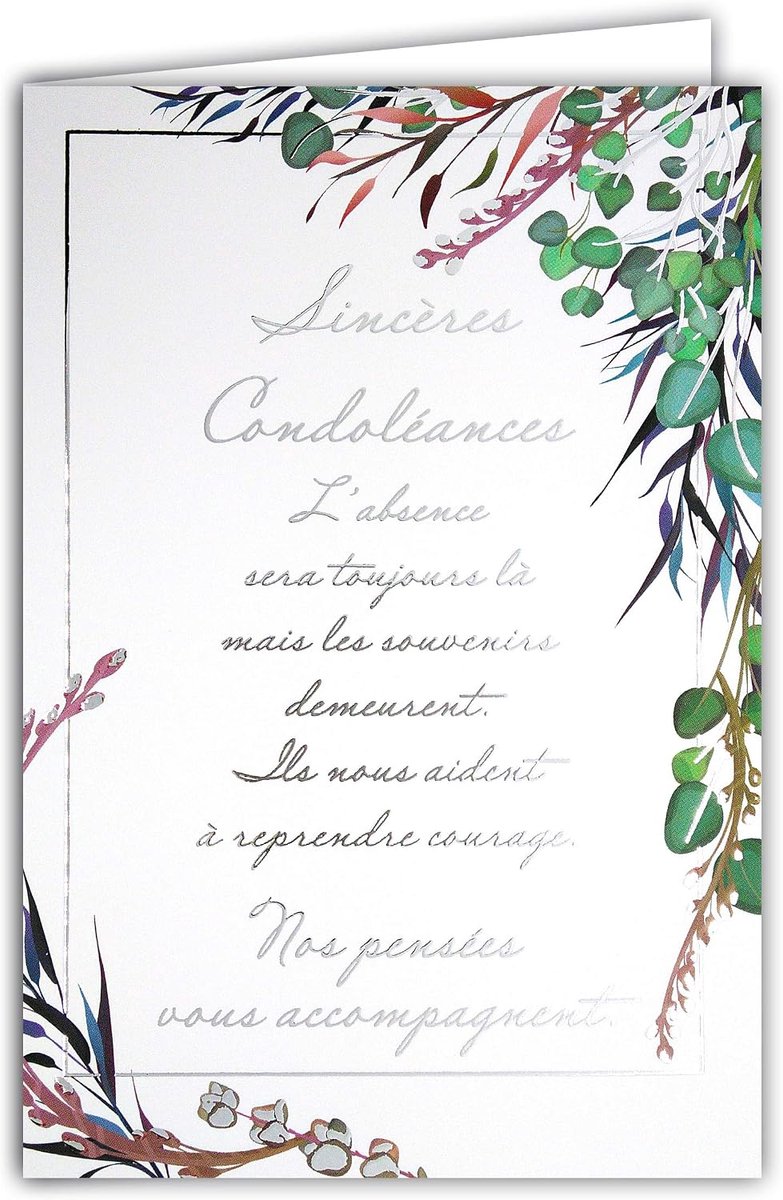 Sincères
Condoléances
L'absence
sera toujours là
mais les souvenirs
demeurent.
Ils nous aident
à reprendre courage.
Nos pensées
vous accompagnent.